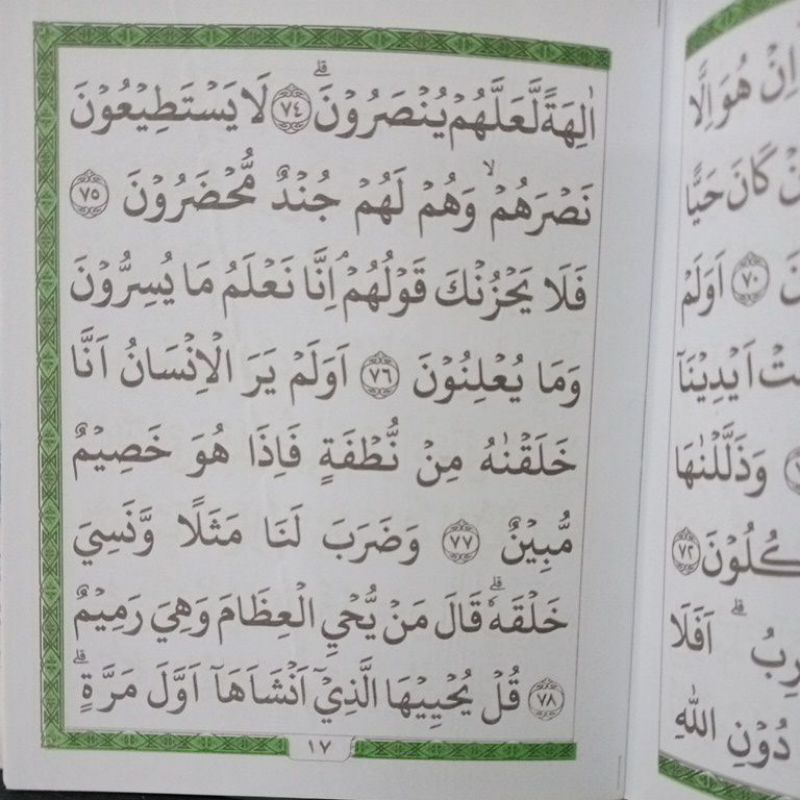 اٰلِهَةً لَّعَلَّهُمْ يُنْصَرُوْنَۗ ﴿٧٤﴾ لَا يَسْتَطِيْعُوْنَ
نَصْرَهُمْۙ وَهُمْ لَهُمْ جُنْدٌ مُّحْضَرُوْنَ ﴿٧٥﴾
فَلَا يَحْزُنْكَ قَوْلُهُمْۘ اِنَّا نَعْلَمُ مَا يُسِرُّوْنَ
وَمَا يُعْلِنُوْنَ ﴿٧٦﴾ اَوَلَمْ يَرَ الْاِنْسَانُ اَنَّا
خَلَقْنٰهُ مِنْ نُّطْفَةٍ فَاِذَا هُوَ خَصِيْمٌ
مُّبِيْنٌ ﴿٧٧﴾ وَضَرَبَ لَنَا مَثَلًا وَّنَسِيَ
خَلْقَهٗۗ قَالَ مَنْ يُّحْيِ الْعِظَامَ وَهِيَ رَمِيْمٌ
﴿٧٨﴾ قُلْ يُحْيِيْهَا الَّذِيْٓ اَنْشَاَهَآ اَوَّلَ مَرَّةٍۗ
١٧
اِنْ هُوَ اِلَّا
كَانَ حَيًّا
﴿٧٠﴾ اَوَلَمْ
اَيْدِيْنَآ
وَذَلَّلْنٰهَا
﴿٧٢﴾
اَفَلَا
دُوْنِ اللّٰهِ